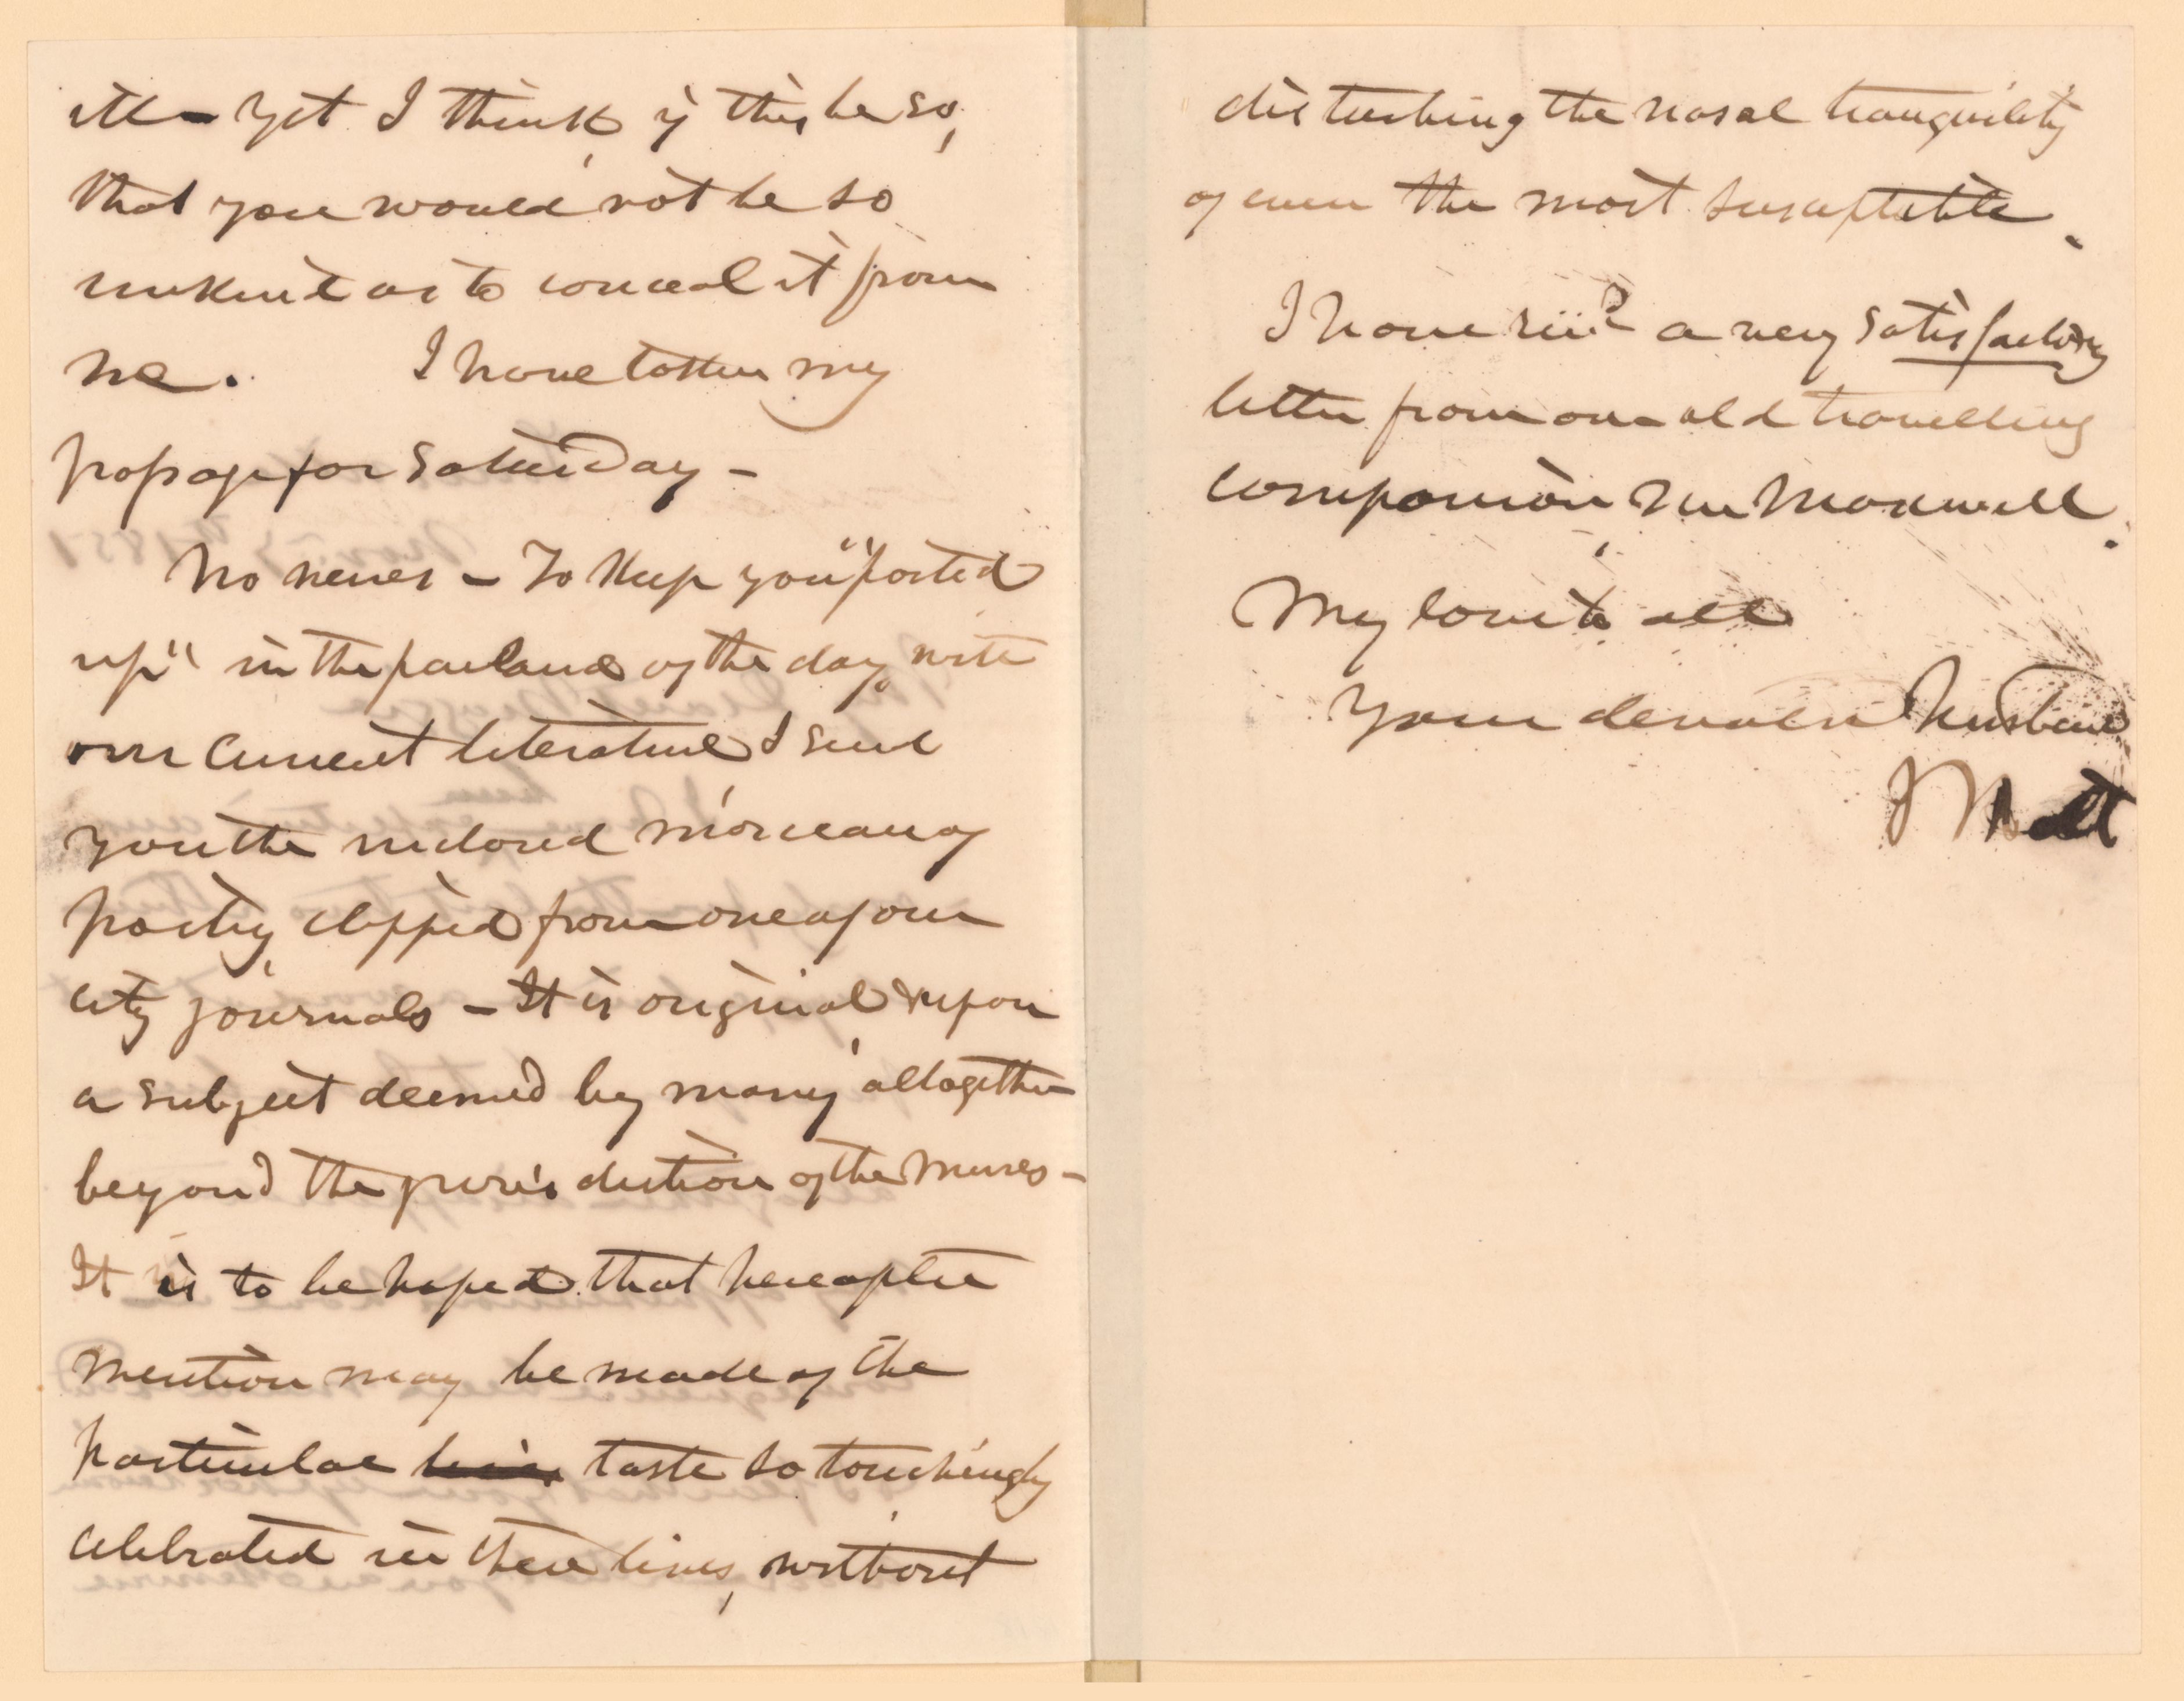 ill – Yet I think, if this be so,
that you would not be so
unkind as to conceal it from
me. I have taken my
passage for Saturday –
No news – To keep you "posted
up" in the parlance of the day, with
our current literature, I send
you the enclosed morceau of
poetry, clipped from one of our
city journals – It is original & upon
a subject deemed by many, altogether
beyond the jurisdiction of the Muses –
It is to be hoped that hereafter
mention may be made of the
particular taste so touchingly
celebrated in these lines, without
disturbing the nasal tranquility
of even the most susceptible.
I have rec'd a very satisfactory
letter from our old travelling
companion, Mr Maxwell.
My love to all
Your devoted husband